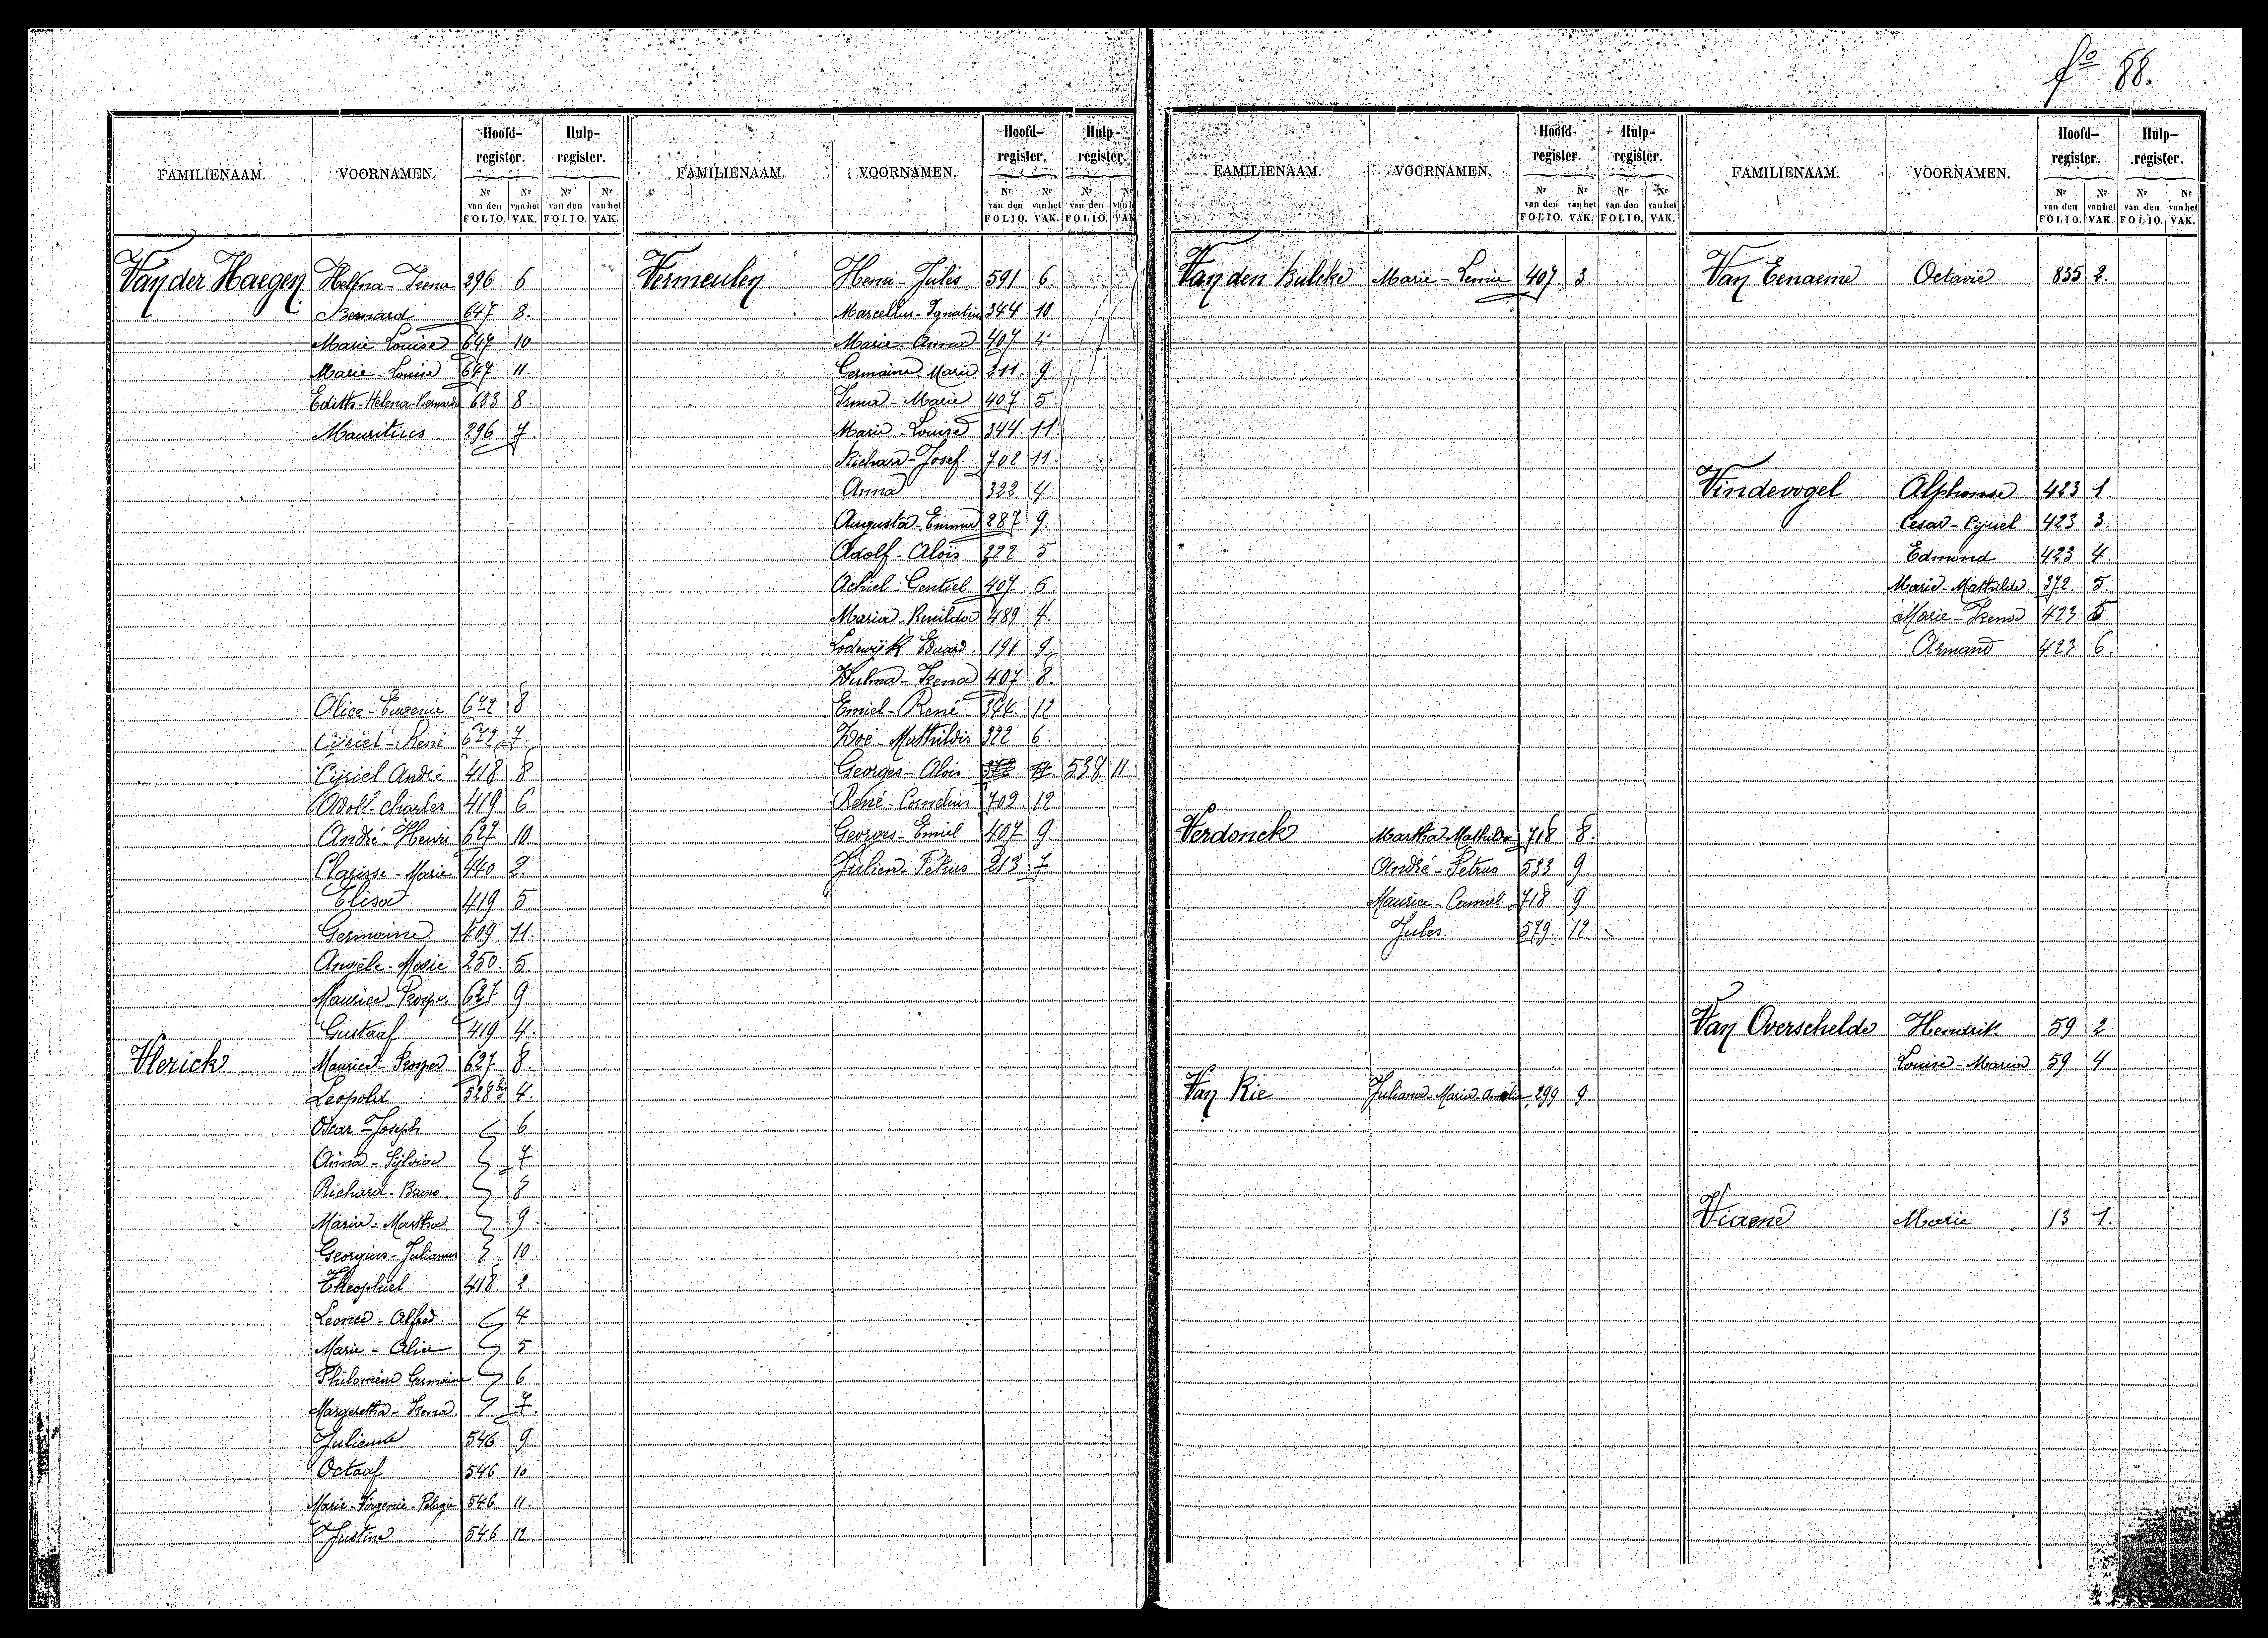 fº 88.
FAMILIENAAM. VOORNAMEN. Hoofd-register. Hulp-register.
Nr van den FOLIO. Nr van het VAK. Nr van den FOLIO. Nr van het VAK.
Van der Haegen Helena-Irena 296 6
Bernard 647 8.
Marie Louise 647 10
Marie-Louise 647 11.
Edith-Helena-Bernarda 623 8.
Mauritius 296 7.
Alice-Eugenie 672 8
Cyriel-René 672 7.
Cyriel André 418 8
Adolf-Charles 419 6
André Henri 627 10
Clarisse-Marie 440 2.
Elisa 419 5
Germaine 409 11.
Angèle-Marie 250. 5.
Maurice Prosp. 627 9
Gustaaf 419 4.
Vlerick Maurice-Prosper 627 8.
Leopold 528bis 4.
Oscar-Joseph 6
Anna-Sylvia 7
Richard-Bruno 8
Maria-Martha 9
Georgius-Julianus 10.
Theophiel 418. 2
Leonie-Alfred. 4
Marie-Alice 5
Philomène Germaine 6
Margeretha-Irena. 7.
Julienne 546 9
Octaaf 546 10
Marie-Virgenie-Pelagie 546 11.
Justine 546 12
FAMILIENAAM. VOORNAMEN. Hoofd-register. Hulp-register.
Nr van den FOLIO. Nr van het VAK. Nr van den FOLIO. Nr van het VAK
Vermeulen Henri-Jules 591 6
Marcellus-Ignatius 344 10
Marie-Anna 407 4
Germaine Marie 211. 9
Irma-Marie 407 5.
Marie-Louise 344. 11.
Richard-Josef. 702 11.
Anna 322 4.
Augusta-Emma 287 9.
Adolf-Alois 222 5
Achiel-Gentiel 407. 6.
Maria-Renilda 489 4.
Lodewijk Eduard. 191 9
Zulma-Irena 407 8.
Emiel-René 344. 12
Zoé-Mathildis 322 6.
Georges-Alois 538 11
René-Cornelius 702 12
Georges-Emiel 407 9
Julien-Petrus 213 7
FAMILIENAAM. VOORNAMEN. Hoofd-register. Hulp-register.
Nr van den FOLIO. Nr van het VAK. Nr van den FOLIO. Nr van het VAK.
Van den Bulcke Marie-Leonie 407. 3.
Verdonck Martha Mathilda 718 8.
André-Petrus 533 9.
Maurice-Camiel 718 9
Jules. 579. 12
Van Rie Juliana-Maria-Amelia 299 9.
FAMILIENAAM. VOORNAMEN. Hoofd-register. Hulp-register.
Nr van den FOLIO. Nr van het VAK. Nr van den FOLIO. Nr van het VAK.
Van Eenaeme Octavie 835 2.
Vindevogel Alphonse 423 1.
Cesar-Cyriel 423 3.
Edmond 423 4.
Marie-Mathilde 372. 5.
Marie-Irena 423 5
Armand 423 6.
Van Overschelde Hendrik 59 2
Louise-Maria 59 4
Viaene Marie 13 1.